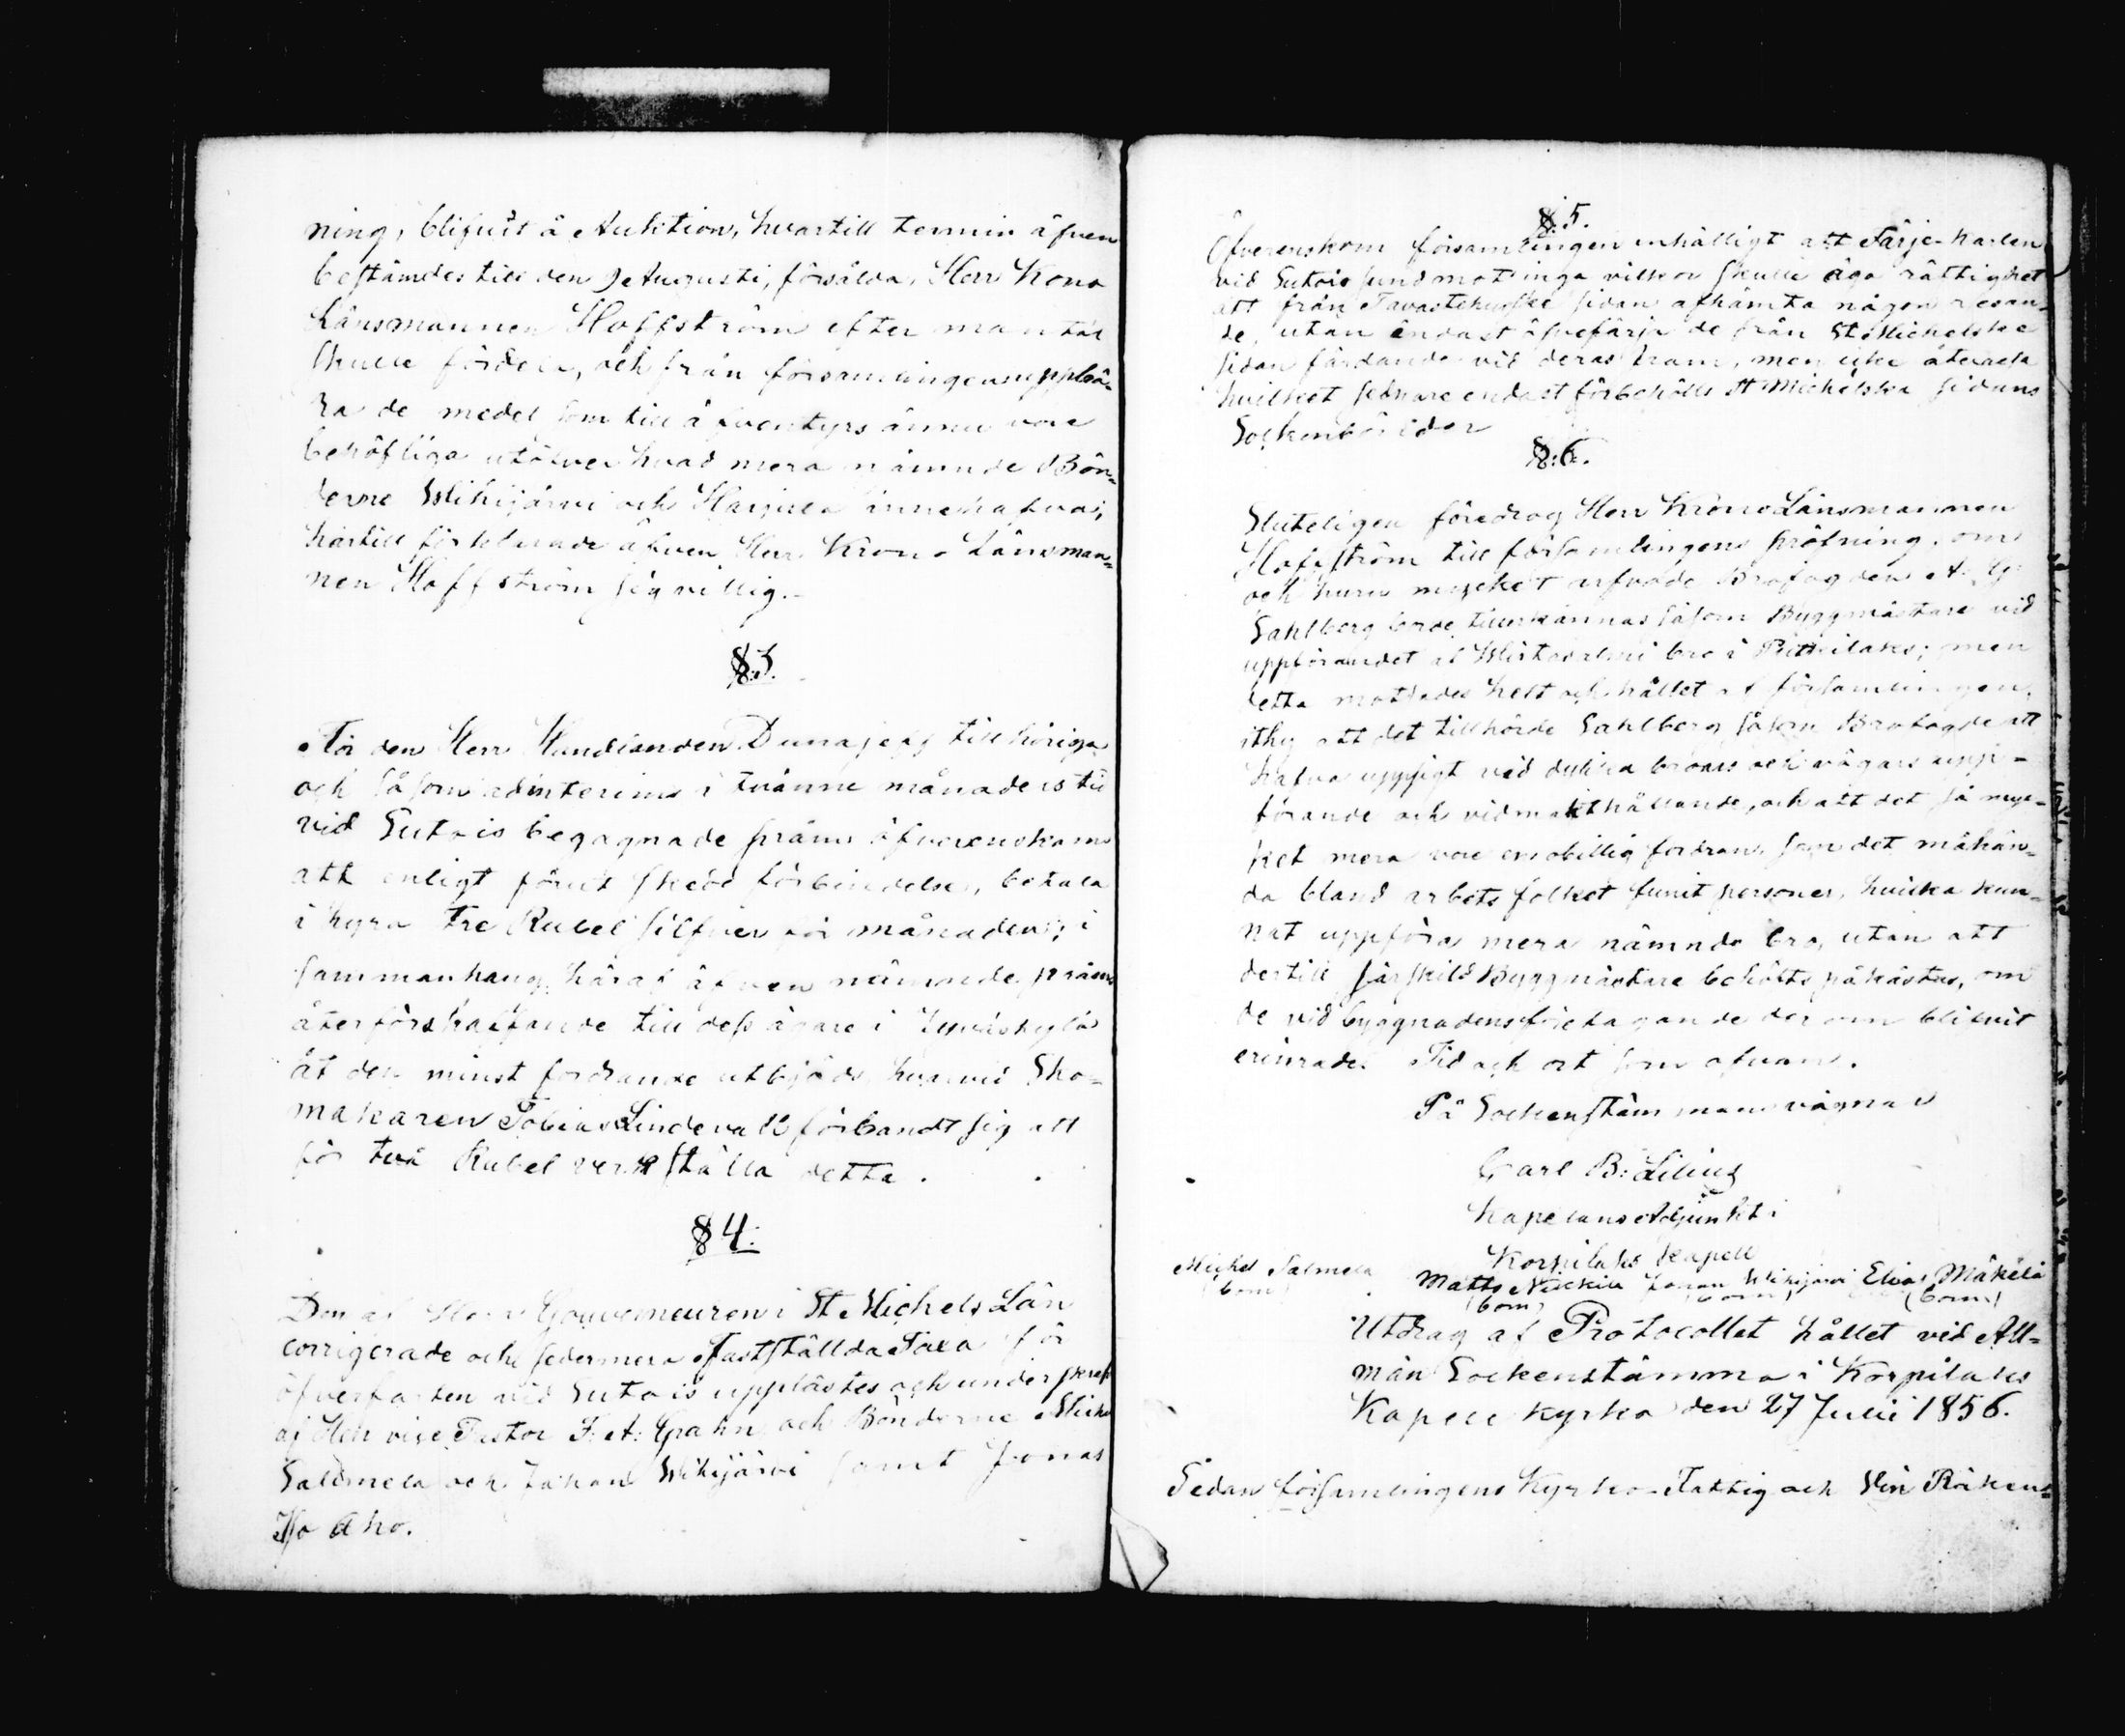 ning, blifvit å Auktion, hvartill termin äfven
bestämdes till den 9 Augusti, försålda, Herr Krono
Länsmannen Hoffström efter mantal
skulle fördela, och från församlingen uppbä-
ra de medel som till äfventyrs ännu vore
behöfliga utöfver hvad mera nämnde Bön-
derne Wihijärvi och Harjula innehafva;
härtill förklarade äfven Herr Krono Länsman-
nen Hoffström sig villig.
§3.
För den Herr Handlanden Dunajeff tillhöriga
och såsom adinterims i tvänne månaders tid
vid Sutois begagnade pråm öfverenskoms
att enligt förut skedd förbindelse, betala
i hyra tre Rubel silfver för månaden; i
sammanhang häraf äfven nämnde pråms
återförskaffande till dess ägare i Jyväskylä
åt den minst fordrande utbjöds, hvarvid Sko-
makaren Tobias Lindevall förbandt sig att
för två Rubel verkställa detta.
§4.
Den af Herr Gouverneuren i St Michels Län
corrigerade och sedermera Fastställda Taxa för
öfverfarten vid Sutois upplästes och underskrefs
af Herr vice Pastor F. A. Grahn och Bönderne Michel
Salmela och Johan Wihijärvi samt Jonas
Iso Aho.
§.5.
Öfverenskom församlingen enhälligt att Färje-karlen
vid Sutois sund mot inga vilkor skulle äga rättighet
att från Tavastehuske sidan afhämta någon resan-
de, utan endast öfverfärja de från St Michelske
sidan färdande vid deras fram, men icke återresa
hvilket sednare endast förbehölls St Michelska sidans
Sockenboer
§.6.
Sluteligen föredrog Herr Krono Länsmannen
Hoffström till församlingens pröfning, om
och huru mycket arfvode Brofogden A. G.
Sahlberg borde tillerkännas såsom Byggmästare vid
uppförandet af bro i men
detta helt och hållet af församlingen,
ithy att det tillhörde Sahlberg såsom Brofogde att
hafva uppsigt vid dylika broars och vägars upp-
förande och vidmakthållande, och att det så myc-
ket mera vore en obillig fordran, som det måhän-
da bland arbetsfolket funnit personer, hvilka kun-
nat uppföra mera nämnde bro, utan att
dertill särskild Byggmästare behöfts påkostas, om
de vid byggnadens företagande derom blifvit
erinrade. Tid och ort som ofvan.
På Sockenstämmans vägnar
Carl B: Lilius
Kapellans Adjunkt i
Korpilaks Kapell
Michel Salmela Matts Johan Wihijärvi Elias Mäkelä
(bom) (bom) (bom) (bom)
Utdrag af Protocollet hållet vid All-
män Sockenstämma i Korpilaks
Kapell kyrka den 27 Julii 1856.
Sedan församlingens Kyrko- Fattig och Vin Räken-